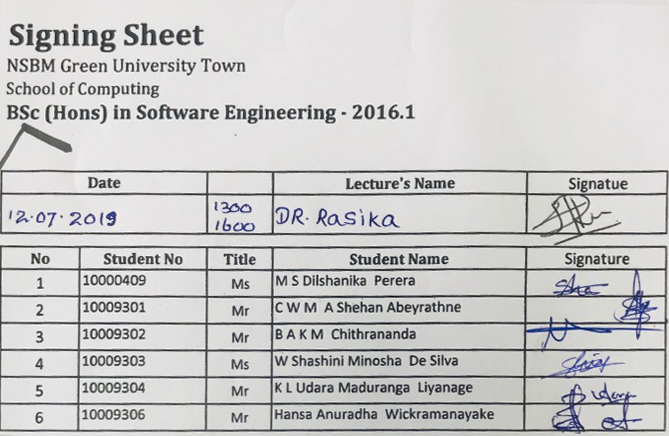 Signing Sheet
NSBM Green University Town
School of Computing
BSc (Hons) in Software Engineering - 2016.1
Date Lecture's Name Signatue
12.07.2019 1300 1600 DR. Rasika
No Student No Title Student Name Signature
1 10000409 Ms M S Dilshanika Perera
2 10009301 Mr C W M A Shehan Abeyrathne
3 10009302 Mr B A K M Chithrananda
4 10009303 Ms W Shashini Minosha De Silva
5 10009304 Mr K L Udara Maduranga Liyanage
6 10009306 Mr Hansa Anuradha Wickramanayake